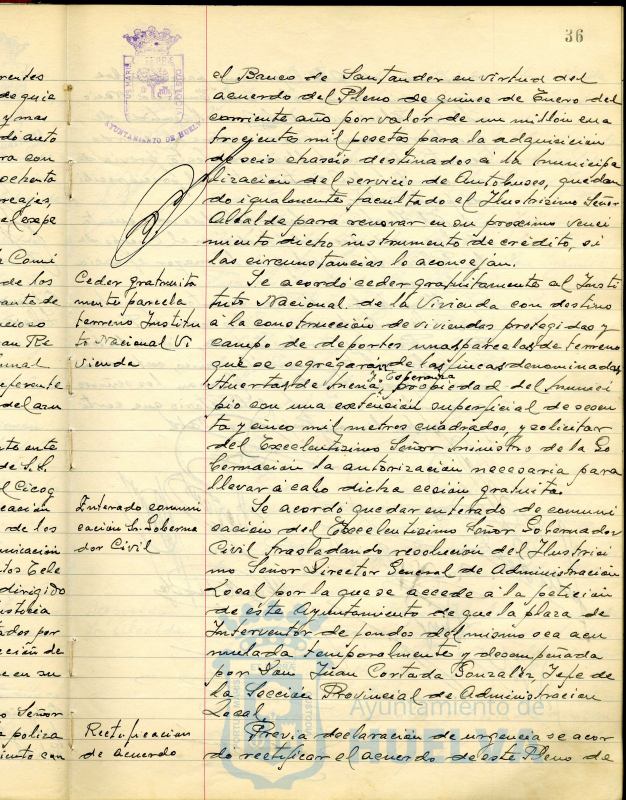 36
el Banco de Santander en virtud del
acuerdo del Pleno de quince de Enero del
corriente año por valor de un millón cua
trocientas mil pesetas para la adquisición
de seis chassis destinados a la municipa
lización del servicio de Autobuses, quedan
do igualmente facultado el Ilustrísimo Señor
Alcalde para renovar en su próximo venci
miento dicho instrumento de crédito, si
las circunstancias lo aconsejan.
Ceder gratuita
mente parcela
terreno Institu
to Nacional Vi
vienda
Se acordó ceder gratuitamente al Insti
tuto Nacional de la Vivienda con destino
a la construcción de viviendas protegidas y
campo de deportes unas parcelas de terreno
que se segregarán de las fincas denominadas
Huertas de Mena, y Esperanza propiedad del Munici
pio con una extensión superficial de sesen
ta y cinco mil metros cuadrados, y solicitar
del Excelentísimo Señor Ministro de la Go
bernación la autorización necesaria para
llevar á cabo dicha cesión gratuita.
Enterado comuni
cación Sr. Goberna
dor Civil
Se acordó quedar enterado de comuni
cación del Excelentísimo Señor Gobernador
Civil trasladando resolución del Ilustrísi
mo Señor Director General de Administración
Local por la que se accede a la petición
de éste Ayuntamiento de que la plaza de
Interventor de fondos del mismo sea acu
mulada temporalmente y desempeñada
por Don Juan Cortada González Jefe de
la Sección Provincial de Administración
Local.
Rectificación
de acuerdo
Previa declaración de urgencia se acor
dó rectificar el acuerdo de este Pleno de
AYUNTAMIENTO DE HUELVA
Ayuntamiento de
HUELVA